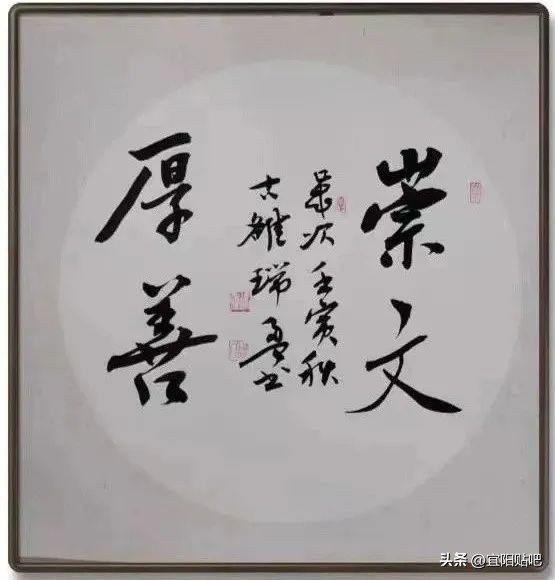 崇文
岁次壬寅秋
古雒瑞勇书
厚善
头条@宜阳贴吧